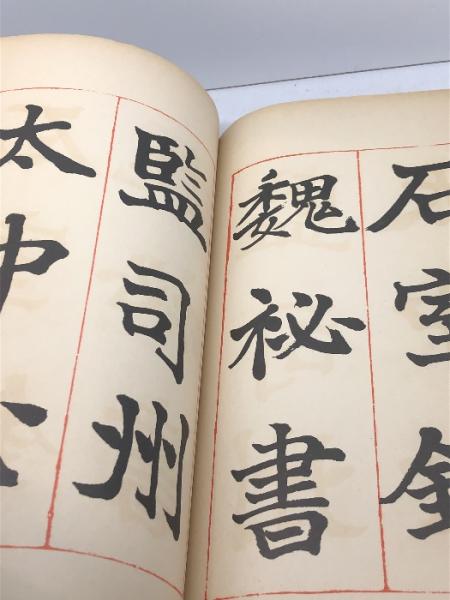 石室
魏祕書
監司州
太中